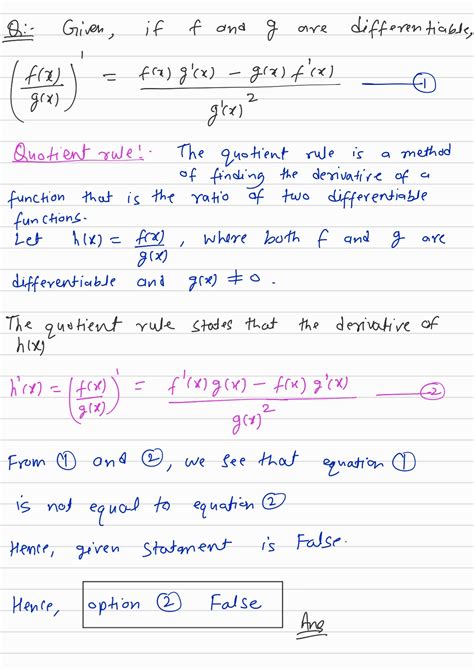 Q:- Given, if f and g are differentiable,
(f(x)/g(x))' = (f(x) g'(x) - g(x) f'(x))/g'(x)² —— ①
Quotient rule:- The quotient rule is a method
of finding the derivative of a
function that is the ratio of two differentiable
functions.
Let h(x) = f(x)/g(x), where both f and g are
differentiable and g(x) ≠ 0.
The quotient rule states that the derivative of
h(x)
h'(x) = (f(x)/g(x))' = (f'(x) g(x) - f(x) g'(x))/g(x)² —— ②
From ① and ②, we see that equation ①
is not equal to equation ②
Hence, given statment is False.
Hence, option ② False
Ans